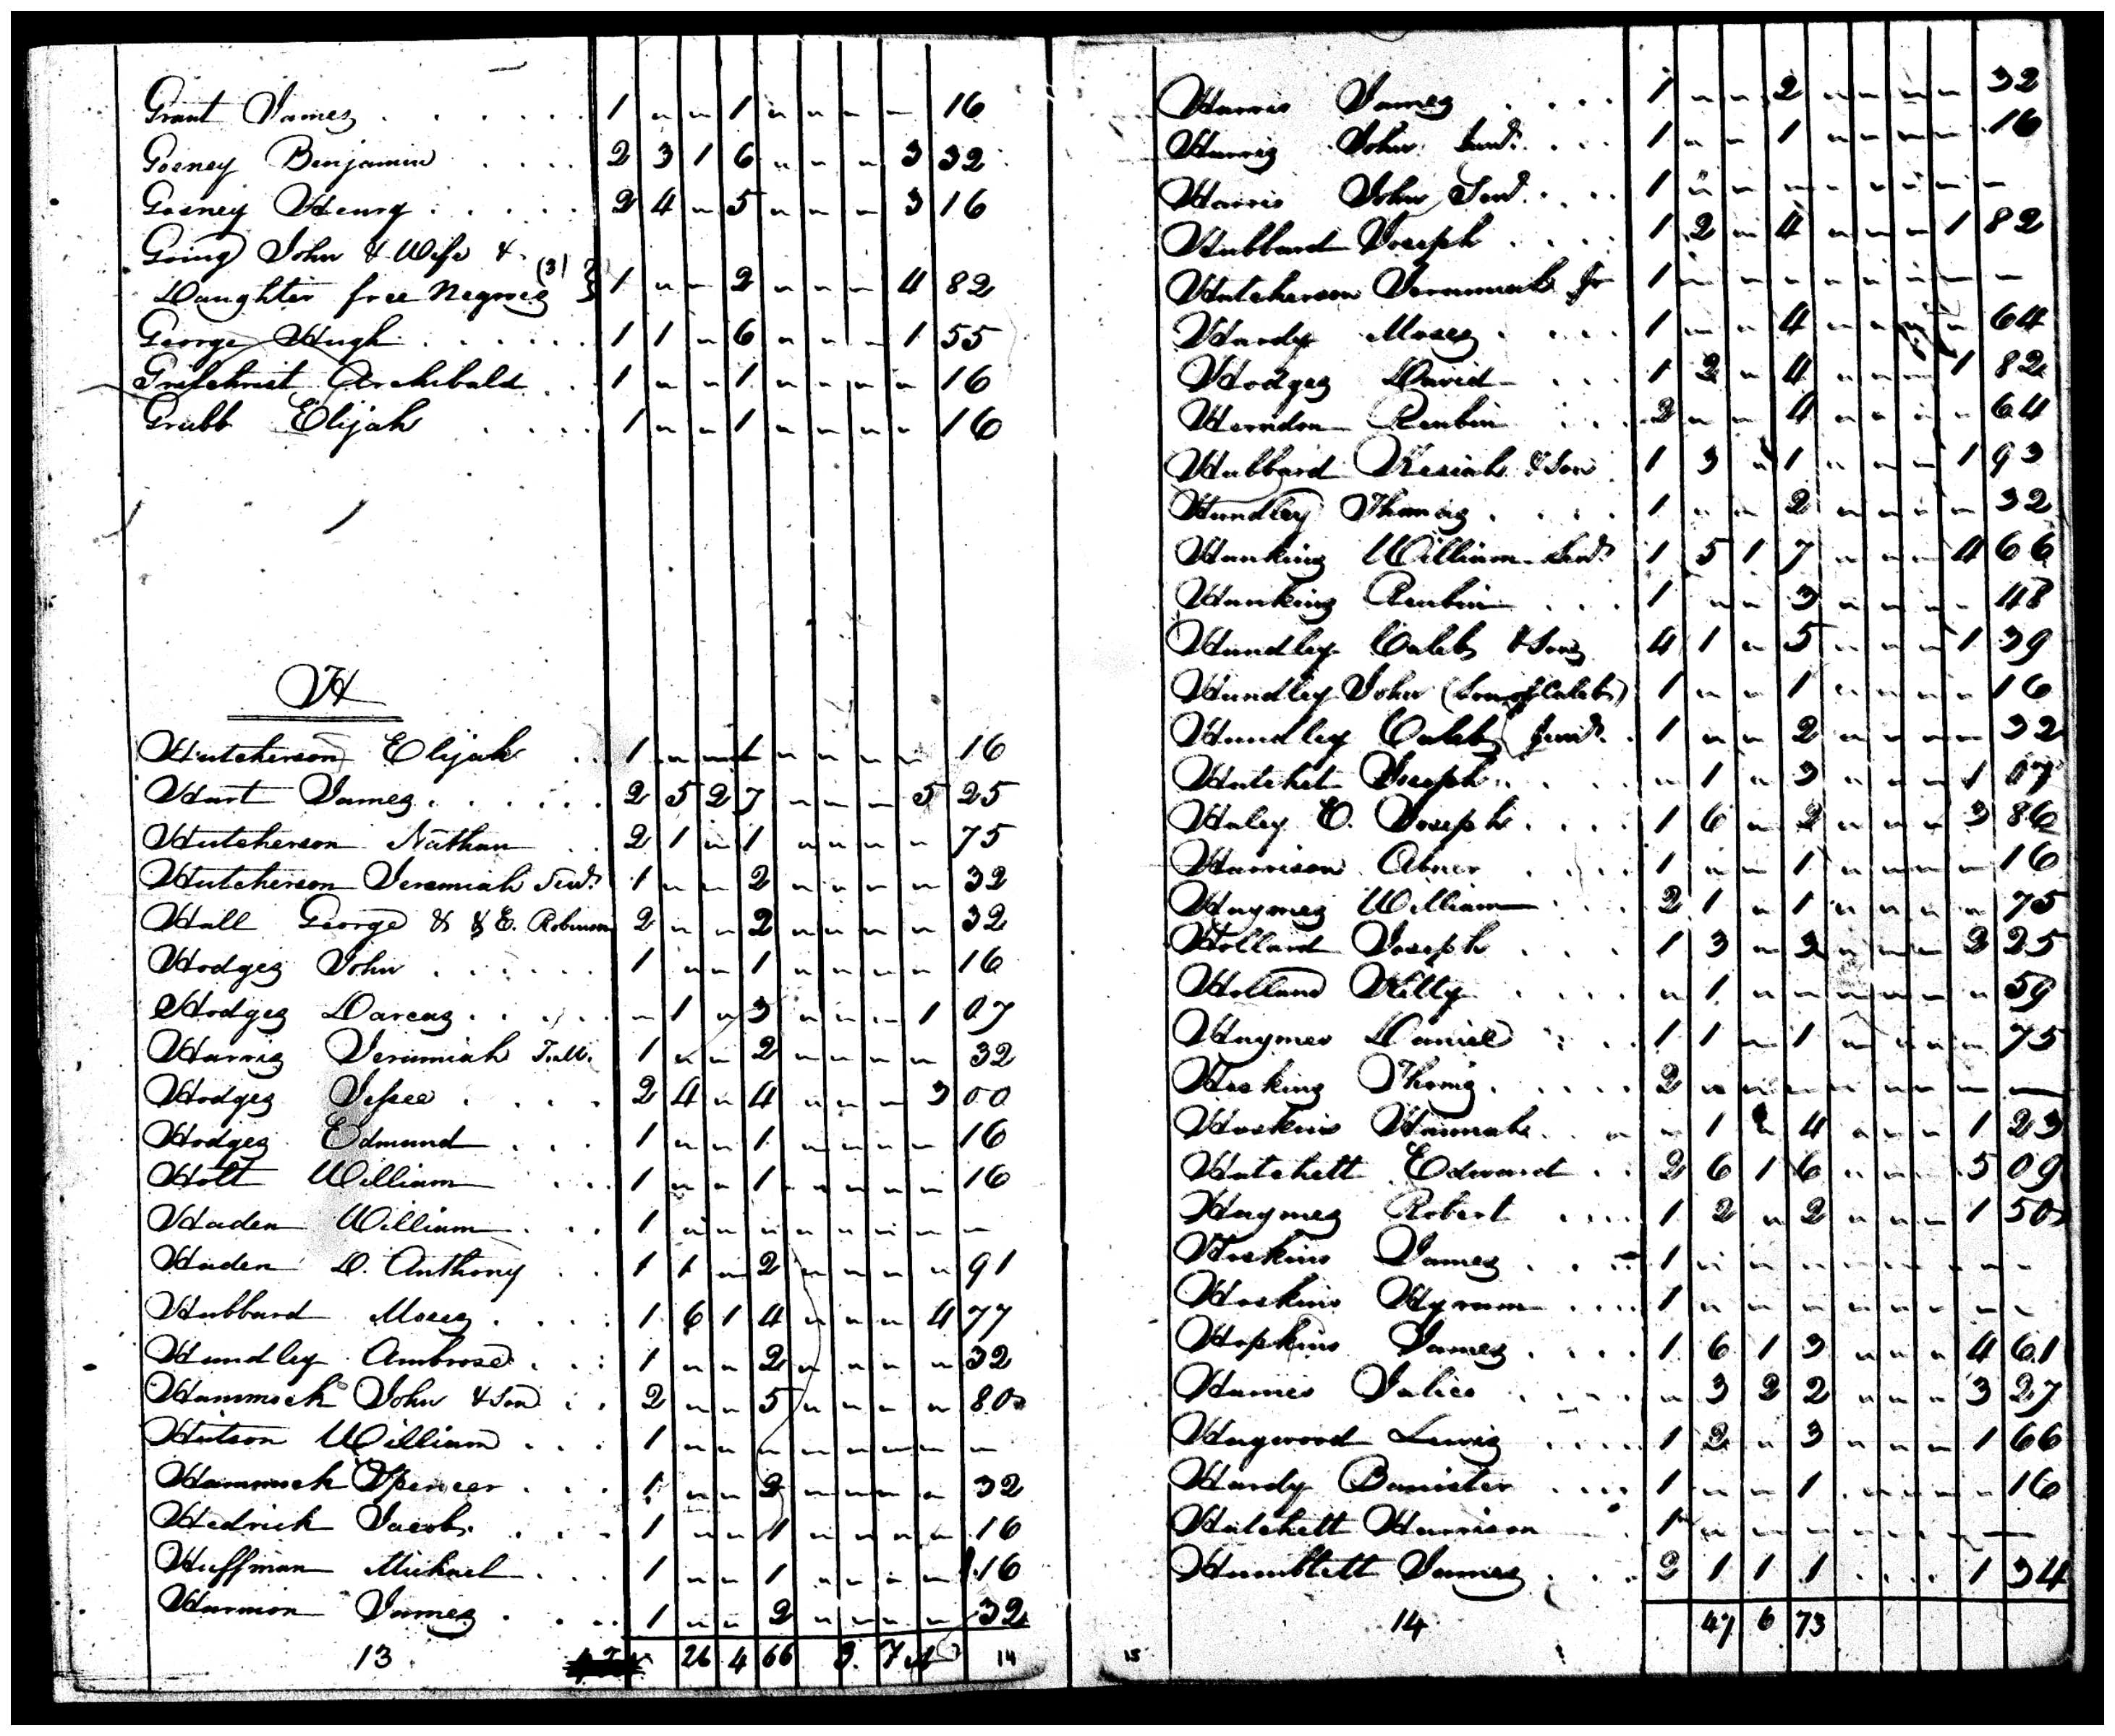 Grant James . . . . . . 1 " " 1 " " " " 16
Gosney Benjamin . . . . 2 3 1 6 " " " 3 32
Gosney Henry . . . . . 2 4 " 5 " " " 3 16
Going John & Wife &
Daughter free Negroes (3) } 1 " " 2 " " " 4 82
George Hugh . . . . . . 1 1 " 6 " " " 1 55
Gilchrist Archibald . . 1 " " 1 " " " " 16
Grubb Elijah . . . . 1 " " 1 " " " " 16
H
Hutcherson Elijah . . 1 " " 1 " " " " 16
Hart James . . . . . . 2 5 2 7 " " " 5 25
Hutcherson Nathan . . 2 1 " 1 " " " " 75
Hutcherson Jeremiah Senr. 1 " " 2 " " " " 32
Hall George & E. Robinson 2 " " 2 " " " " 32
Hodges John . . . . . . 1 " " 1 " " " " 16
Hodges Darcus . . . . . " 1 " 3 " " " 1 07
Harris Jeremiah 1 " " 2 " " " " 32
Hodges Jessee . . . . 2 4 " 4 " " " 3 00
Hodges Edmund . . . 1 " " 1 " " " " 16
Holt William . . . 1 " " 1 " " " " 16
Haden William . . . 1 " " " " " " " "
Haden D. Anthony . . 1 1 " 2 " " " " 91
Hubbard Moses . . . . 1 6 1 4 " " " 4 77
Hundley Ambrose . . . 1 " " 2 " " " " 32
Hammock John & Son . . 2 " " 5 " " " " 80
Hutson William . . . 1 " " " " " " " "
Hammock Spencer . . . 1 " " 2 " " " " 32
Hedrick Jacob . . . . 1 " " 1 " " " " 16
Huffman Michael . . . 1 " " 1 " " " " 16
Harmon James . . . . 1 " " 2 " " " " 32
13 26 4 66 3. 7 14
Harris James . . . . 1 " " 2 " " " " 32
Harris John Junr. . . . 1 " " 1 " " " " 16
Harris John Senr. . . . 1 " " " " " " " "
Hubbard Joseph . . . . 1 2 " 4 " " " 1 82
Hutcherson Jeremiah Jr 1 " " " " " " " "
Hardy Moses . . . . 1 " " 4 " " " " 64
Hodges David . . . 1 2 " 4 " " " 1 82
Herndon Reubin . . . 2 " " 4 " " " " 64
Hubbard Kesiah & Son 1 3 " 1 " " " 1 93
Hundley Thomas . . . . 1 " " 2 " " " " 32
Hankins William Senr. 1 5 1 7 " " " 4 66
Hankins Reubin . . . 1 " " 3 " " " " 48
Hundley Caleb & Sons 4 1 " 5 " " " 1 39
Hundley John (Son of Caleb) 1 " " 1 " " " " 16
Hundley Caleb Junr. . 1 " " 2 " " " " 32
Hatchet Joseph . . . . " 1 " 3 " " " 1 07
Haley E. Joseph . . . . 1 6 " 2 " " " 3 86
Harrison Abner . . . . 1 " " 1 " " " " 16
Haymes William . . . 2 1 " 1 " " " " 75
Holland Joseph . . . 1 3 " 3 " " " 2 25
Holland Killy . . . . " 1 " " " " " " 59
Haymes Daniel . . . 1 1 " 1 " " " " 75
Hoskins Thomas . . . . 2 " " " " " " " —
Hoskins Hannah . . . " 1 " 4 " " " 1 23
Hatchett Edward . . 2 6 1 6 " " " 5 09
Haymes Robert . . . . 1 2 " 2 " " " 1 50
Hoskins James . . . 1 " " " " " " " "
Hoskins Hyram . . . . 1 " " " " " " " "
Hopkins James . . . . 1 6 1 3 " " " 4 61
Hames Julies . . . . " 3 2 2 " " " 3 27
Haywood Lewis . . . . 1 2 " 3 " " " 1 66
Hardy Banister . . . . 1 " " 1 " " " " 16
Hatchett Harrison . 1 " " " " " " " —
Hamblett James . . . 2 1 1 1 . . . . 1 34
15 14 47 6 73